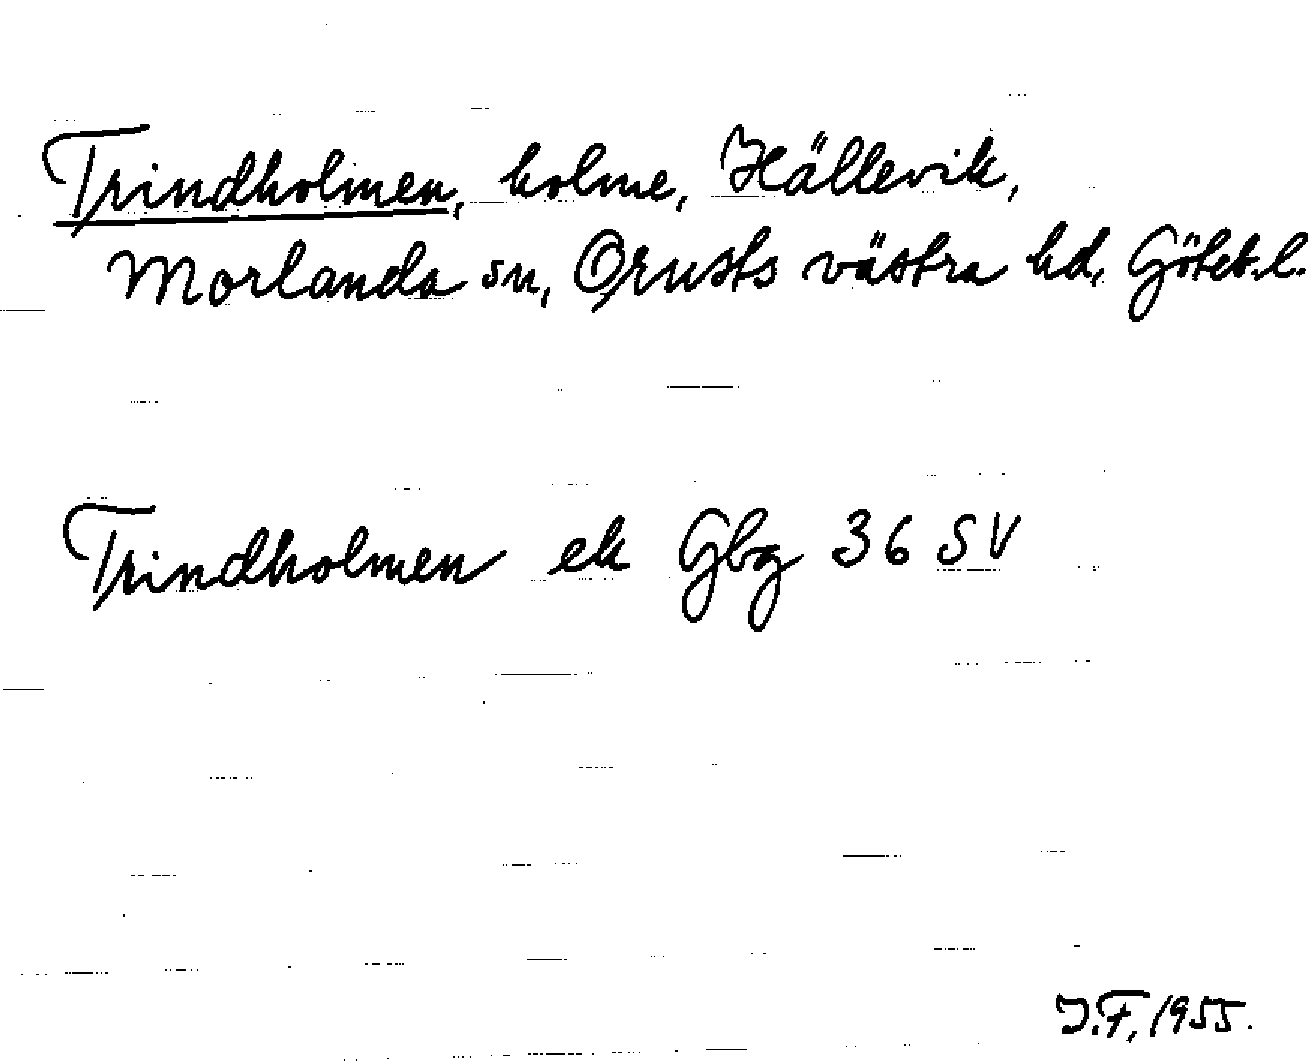 Trindholmen, holme, Hällevik,
Morlanda sn, Orusts västra hd, Göteb.l.
Trindholmen ek Gbg 36 SV
J.F. 1955.